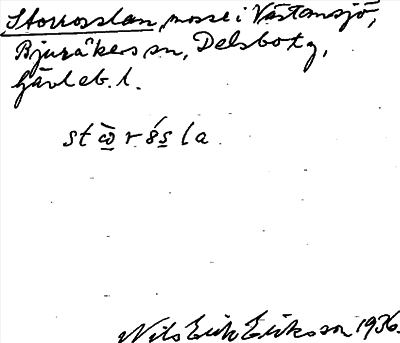 Storrosslan, mosse i Västansjö,
Bjuråkers sn, Delsbo tg,
Gävleb. l.
stὼ̲rös̲la
Nils Erik Eriksson 1936.